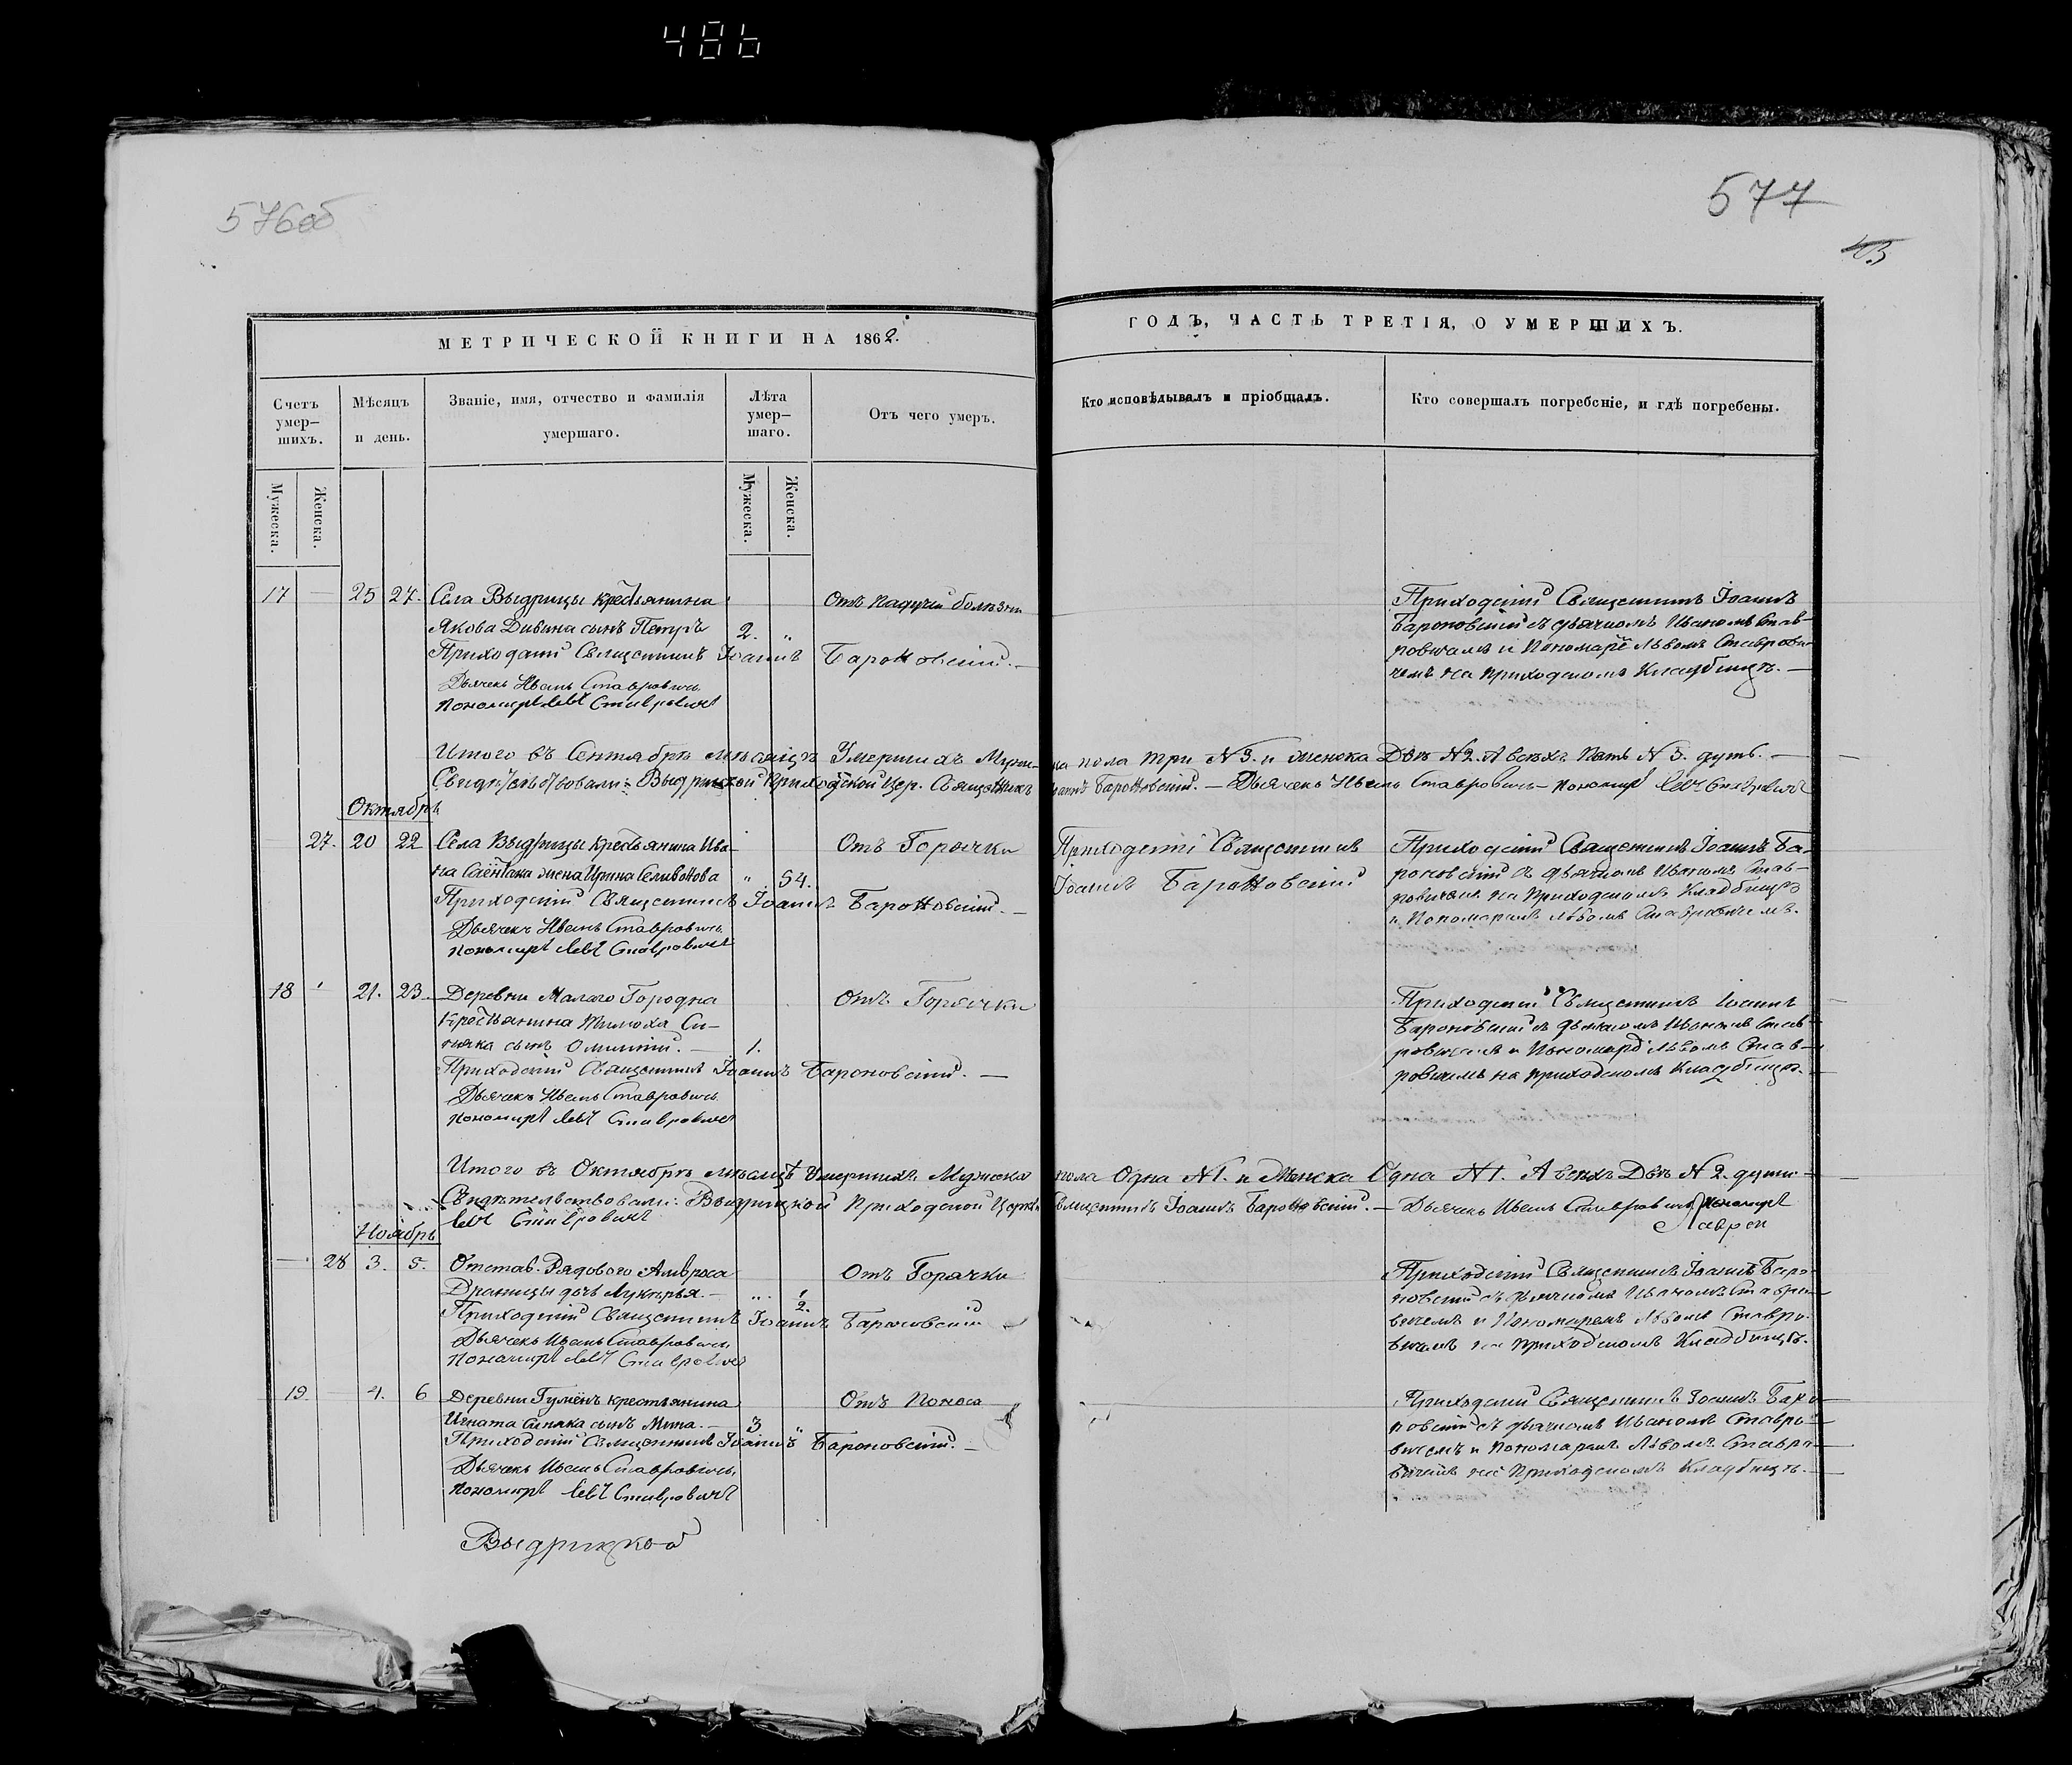 486
576об
577
43
МЕТРИЧЕСКОЙ КНИГИ НА 1862.
ГОДЪ, ЧАСТЬ ТРЕТІЯ, О УМЕРШИХЪ.
Счетъ умер-шихъ.
Мѣсяцъ и день.
Званіе, имя, отчество и фамилія умершаго.
Лѣта умер-шаго.
Отъ чего умеръ.
Кто исповѣдывалъ и пріобщалъ.
Кто совершалъ погребеніе, и гдѣ погребены.
Мужеска.
Женска.
Мужеска.
Женска.
17 25 27. Села Выдрицы крестьянина
Якова Дивина сынъ Петръ 2. „
Отъ падучей болѣзни
Приходскій Священникъ Іоаннъ Бароновскій.
Дьячекъ Иванъ Ставровичъ
Пономарь Левъ Ставровичъ
Приходскій Священникъ Іоаннъ
Бароновскій съ дьячкомъ Иваномъ Став-
ровичемъ и Пономарё Львомъ Ставрови-
чемъ на приходскомъ Кладбищѣ. —
Итого въ Сентябрѣ мѣсяцѣ Умершихъ Муже-
ска пола три N 3. и женска Двѣ N 2. А всѣхъ Пять N 5. душъ. —
Свидѣтельствовали: Выдрицкой Приходской Цер. Священникъ
Іоаннъ Бароновскій. — Дьячекъ Иванъ Ставровичъ — Пономарь Левъ Ставровичъ
Октябрь
27. 20 22 Села Выдрицы крестьянина Ива-
на жена Ирина Селивонова „ 54.
Отъ Горячки
Приходскій Священникъ Іоаннъ Бароновскій. —
Дьячекъ Иванъ Ставровичъ
Пономарь Левъ Ставровичъ
Приходскій Священникъ
Іоаннъ Бароновскій
Приходскій Священникъ Іоаннъ Ба-
роновскій съ дьячкомъ Иваномъ Став-
ровичемъ на Приходскомъ Кладбищѣ
и Пономаремъ Львомъ Ставровичемъ.
18 21. 23. Деревни Малаго Городна
Крестьянина Тимоха Си-
няка сынъ 1.
Отъ Горячки
Приходскій Священникъ Іоаннъ Бароновскій. —
Дьячекъ Иванъ Ставровичъ
Пономарь Левъ Ставровичъ
Приходскій Священникъ Іоаннъ
Бароновскій съ дьячкомъ Иваномъ Став-
ровичемъ и Пономарё Львомъ Став-
ровичемъ на приходскомъ Кладбищѣ. —
Итого въ Октябрѣ мѣсяцѣ Умершихъ Мужеска
пола Одна N 1. и Женска Одна N 1. А всѣхъ Двѣ N 2. души —
Свидѣтельствовали: Выдрицкой Приходской Церкви
Священникъ Іоаннъ Бароновскій. — Дьячекъ Иванъ Ставровичъ Пономарь
Левъ Ставровичъ
Ноябрь
28 3. 5. Отстав. Рядового Амвроса
Драницы дочь Лукерья. — „ 1/2.
Отъ Горячки
Приходскій Священникъ Іоаннъ Бароновскій
Дьячекъ Иванъ Ставровичъ
Пономарь Левъ Ставровичъ
Приходскій Священникъ Іоаннъ Баро-
новскій съ дьячкомъ Иваномъ Ставро-
вичемъ и Пономаремъ Львомъ Ставро-
вичемъ на приходскомъ Кладбищѣ.
19. 4. 6 Деревни Гумёнъ крестьянина
Игната Синяка сынъ Мина. — 3 „
Отъ Поноса
Приходскій Священникъ Іоаннъ Бароновскій. —
Дьячекъ Иванъ Ставровичъ.
Пономарь Левъ Ставровичъ
Приходскій Священникъ Іоаннъ Баро-
новскій съ дьячкомъ Иваномъ Ставро-
вичемъ и Пономаремъ Львомъ Ставро-
вичемъ на Приходскомъ Кладбищѣ. —
Выдрицкой